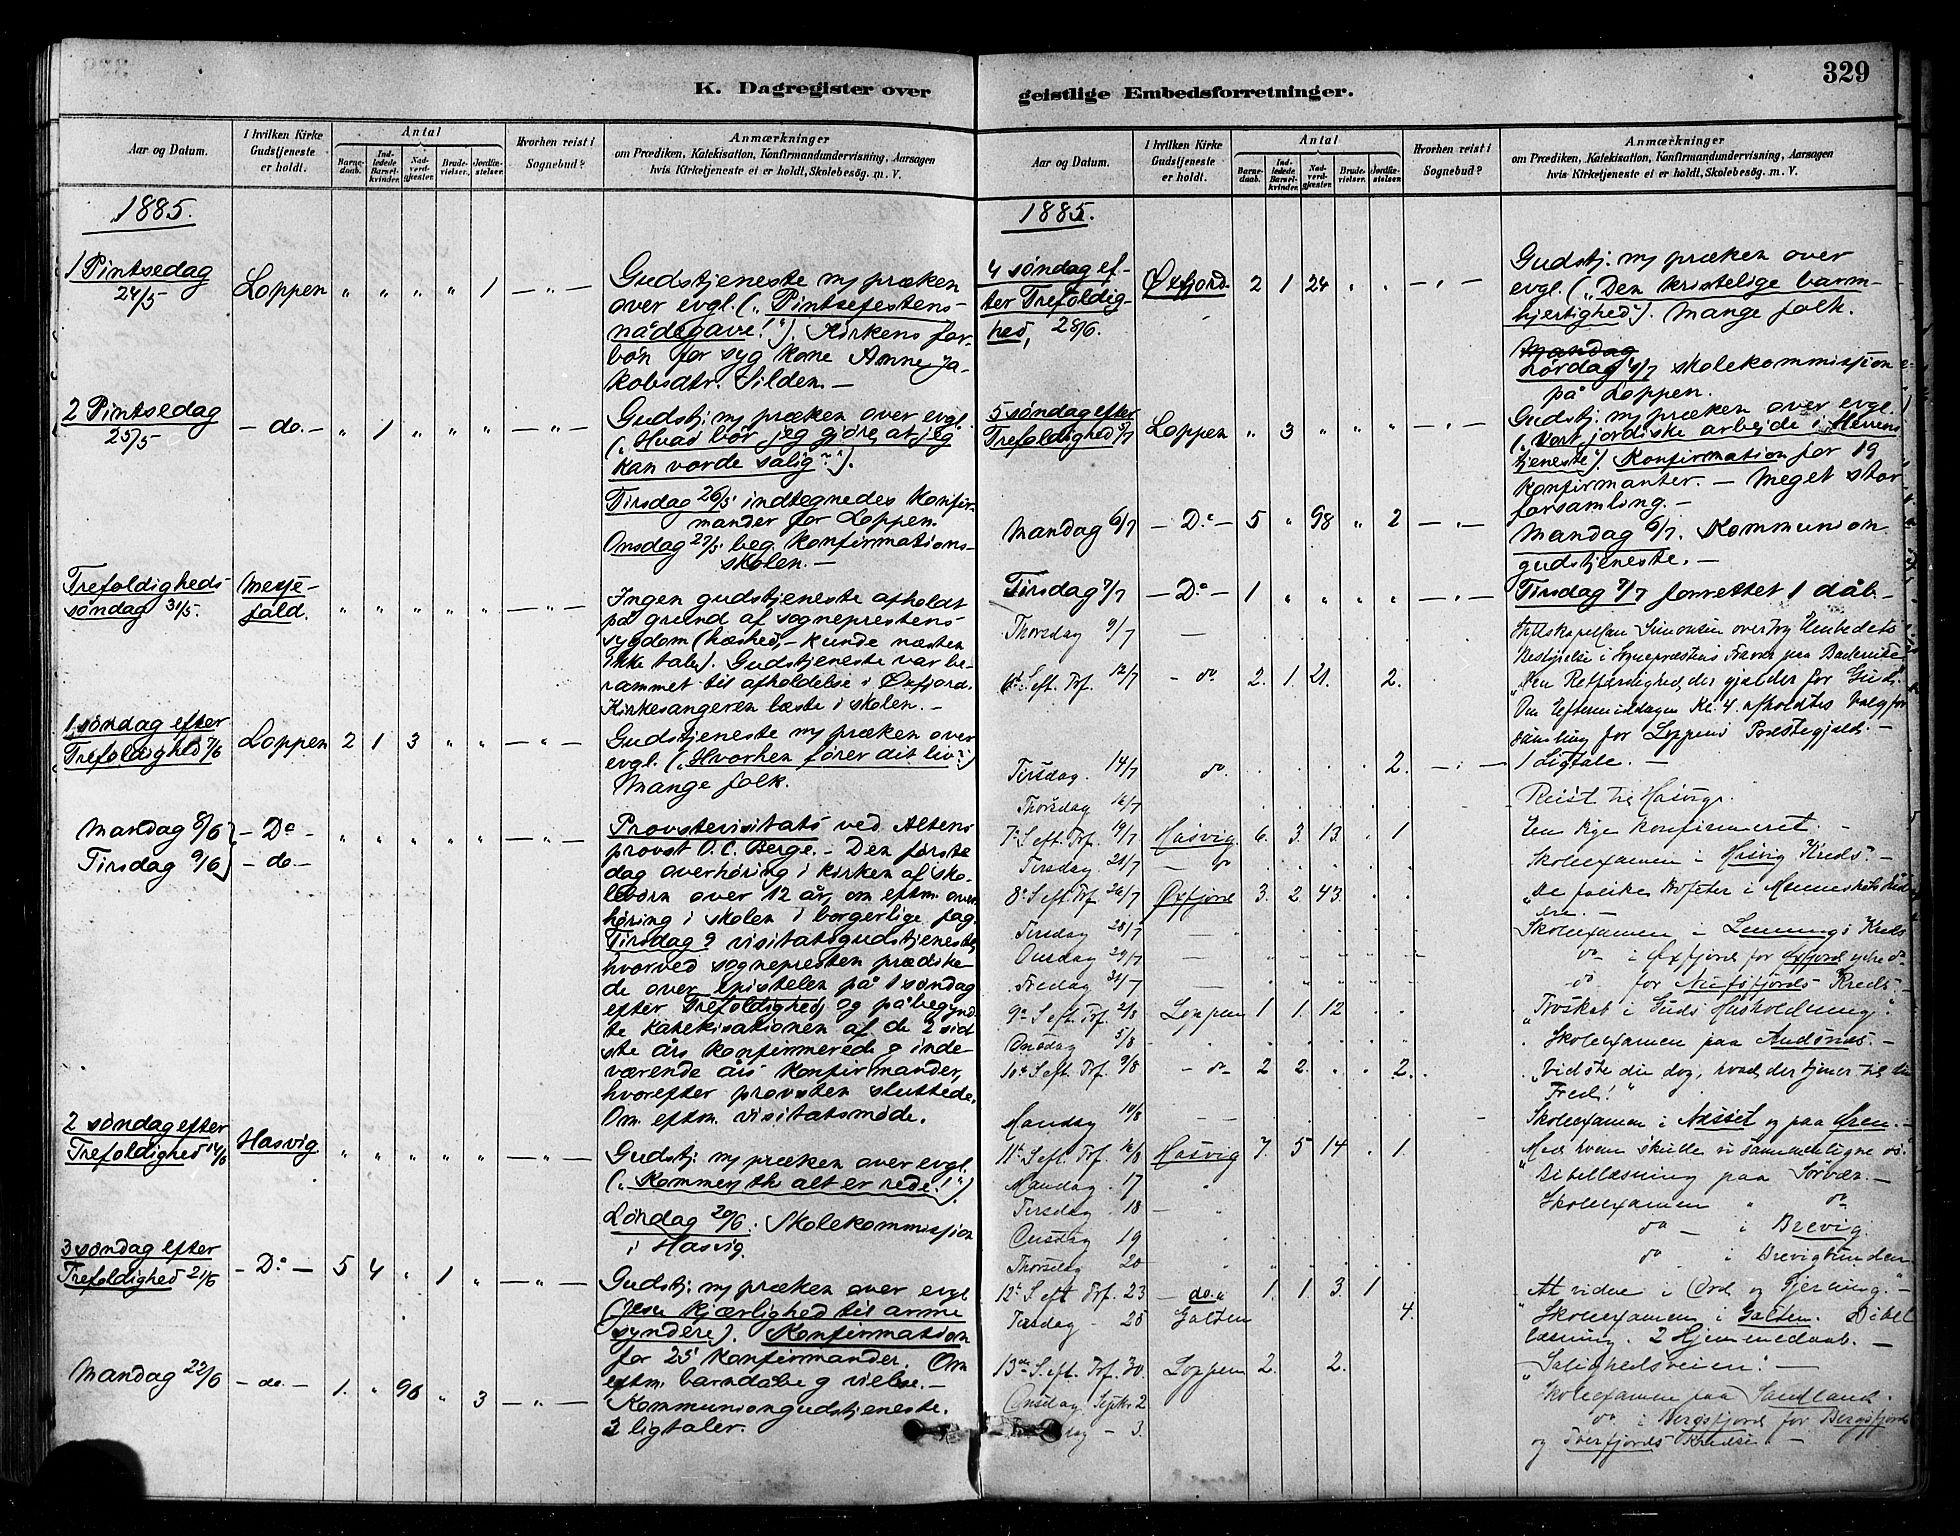 K. Dagregister over
Aar og Datum.
I hvilken Kirke Gudstjeneste er holdt.
Antal
Barnedaab.
Indledede Barselkvinder.
Nadverdgjester.
Brudevielser.
Jordfæstelser.
Hvorhen reist i Sognebud?
Anmærkninger
om Prædiken, Katekisation, Konfirmandundervisning, Aarsagen
hvis Kirketjeneste ei er holdt, Skolebesøg. m. V.
1885.
1 Pintsedag 24/5 Loppen " " " " 1 — " —
Gudstjeneste m/ præken
over evgl. („Pintsefestens
nådegave!"). Kirkens for-
bøn for syg kone Anne Ja-
kobsdtr. Silden. —
2 Pintsedag 25/5 — do. — " 1 " " " — " —
Gudstj. m/ præken over evgl.
(„Hvad bør jeg gjøre, at jeg
kan vorde salig?").
Tirsdag 26/5 indtegnedes Konfir-
mander for Loppen.
Onsdag 27/5 beg. Konfirmations-
skolen. —
Trefoldigheds-
søndag 31/5. " " " " " — " —
Ingen gudstjeneste afholdt
på grund af sogneprestens
sygdom (hæshed, — kunde næsten
ikke tale). Gudstjeneste var be-
rammet til afholdelse i Øxfjord.
Kirkesangeren læste i skolen. —
1 søndag efter
Trefoldighed 7/6 Loppen 2 1 3 " " — " —
Gudstjeneste m/ præken over
evgl. („Hvorhen fører dit liv?")
Mange folk.
Mandag 8/6 — Do — " " " " " — " —
Tirsdag 9/6 — do —
Provstevisitats ved Altens
provst O. C. Berge. — Den første
dag overhøring i kirken af sko-
lebørn over 12 år, om eftm. over-
høring i skolen i borgerlige fag.
Tirsdag 9 visitatsgudstjeneste,
hvorved sognepresten prædike-
de over epistelen på 1 søndag
efter Trefoldighed, og påbegynd-
te katekisationen af de 2 sid-
ste års konfirmerede og inde-
værende års konfirmander,
hvorefter provsten sluttede.
Om eftm. visitatsmøde.
2 søndag efter
Trefoldighed 14/6 Hasvig " " " " " — " —
Gudstj. m/ præken over evgl.
(„Kommer, thi alt er rede!")
Lørdag 20/6. Skolekommission
i Hasvig.
3 søndag efter
Trefoldighed 21/6 — Do — 5 4 " 1 " — " —
Gudstj. m/ præken over evgl.
(Jesu kjærlighed til arme
syndere). Konfirmation
for 25 konfirmander. Om
eftm. barndåb og vielse. —
Mandag 22/6 — do. — 1. " 96 " 3 — " —
Kommuniongudstjeneste.
3 ligtaler.
geistlige Embedsforretninger.
329
Aar og Datum.
I hvilken Kirke Gudstjeneste er holdt.
Antal
Barnedaab.
Indledede Barselkvinder.
Nadverdgjester.
Brudevielser.
Jordfæstelser.
Hvorhen reist i Sognebud?
Anmærkninger
om Prædiken, Katekisation, Konfirmandundervisning, Aarsagen
hvis Kirketjeneste ei er holdt, Skolebesøg. m. V.
1885.
4 søndag ef-
ter Trefoldig-
hed, 28/6. Øxfjord 2 1 24 " " — " —
Gudstj. m/ præken over
evgl. („Den kristelige barm-
hjertighed"). Mange folk.
Mandag
Lørdag 4/7 skolekommission
på Loppen.
5 søndag efter
Trefoldighed 5/7 Loppen " 3 " " " — " —
Gudstj. m/ præken over evgl.
(„Vort jordiske arbejde i Herrens
tjeneste"). Konfirmation for 19
konfirmanter. — Meget stor
forsamling. —
Mandag 6/7 — Do — 5 " 98 " 2 — " —
Mandag 6/7. Kommunion-
gudstjeneste. —
Tirsdag 7/7 — Do — 1 " " " " — " —
Tirsdag 7/7 forrettet 1 dåb. —
Thorsdag 9/7 —
Stiftskapellan Simonsen overtog Embedets
Bestyrelse i Sognepræstens Fravær paa Badereise
6te S. eft. Trf. 12/7 — do 2. 1. 21. 2.
„Den Retfærdighed, der gjælder for Gud."
Om Eftermiddagen Kl. 4 afholdtes Valgfor-
samling for Loppens Præstegjeld. —
Tirsdag. 14/7 do 2. — " —
1 Ligtale. —
Thorsdag 16/7
Reist til Hasvig.
7de S. eft. Trf. 19/7 Hasvig 6. 3. 13. 1.
En Pige konfirmeret. —
Tirsdag 21/7 — do
Skoleexamen i Hasvig Kreds. —
8de S. eft. Trf 26/7 Øxfjord 3. 2 43.
„De falske Profeter i
Tirsdag 28/7 —
Skoleexamen i Kreds
Onsdag 29/7 —
do i Øxfjord for Øxfjord
Fredag 31/7 —
do for Kreds —
9de S. eft. Trf. 2/8 Loppen 1 1. 12
„Troskab i Guds Husholdning."
Onsdag 5/8 —
Skoleexamen paa Andsnes. —
10de S. eft. Trf. 9/8 — do 2 2. 2.
„Vidste du dog, hvad der tjener til din
Fred!"
Mandag 10/8 —
Skoleexamen i Næsset og paa Øren. —
11te S. eft. Trf. 16/8 Hasvig 7. 5 14 1.
„Med hvem skulle vi sammenligne os."
Mandag 17
Bibellæsning paa Sørvær. —
Tirsdag. 18 —
Skoleexamen " do
Onsdag 19
do — i Brevig
Thorsdag 20
do i Brevigbunden
12te S. eft. Trf. 23 — do. 1. 1. 3. 1
„At vidne i Ord og Gjerning." —
Tirsdag 25 Galten 4.
Skoleexamen i Galten. Bibel-
læsning. 2 Hjemmedaab. —
13de S. eft. Trf. 30. Loppen 2. 2.
„Salighedsveien". —
Onsdag Septbr. 2
Skoleexamen paa Sandland.
3.
do i Bergsfjord for Bergsfjords
og Tverfjords Kredse. —